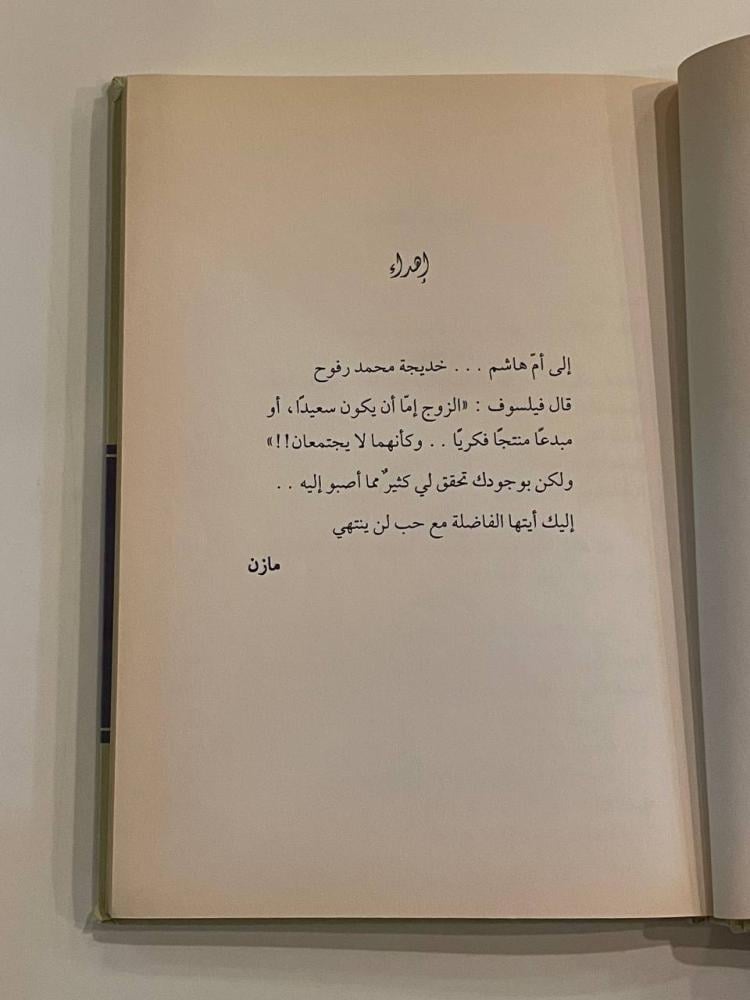 إهداء
إلى أمّ هاشم . . . خديجة محمد رفوح
قال فيلسوف : «الزوج إمّا أن يكون سعيدًا، أو
مبدعًا منتجًا فكريًا . . وكأنهما لا يجتمعان!!»
ولكن بوجودك تحقق لي كثيرٌ مما أصبو إليه . .
إليك أيتها الفاضلة مع حب لن ينتهي
مازن